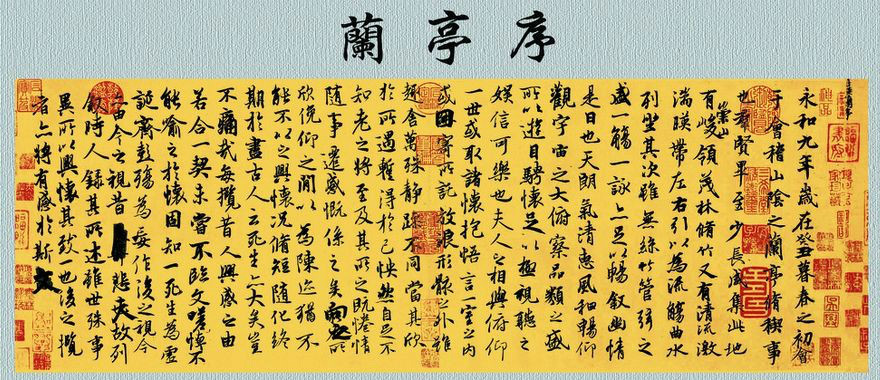 蘭亭序
永和九年歲在癸丑暮春之初會
于會稽山陰之蘭亭脩禊事
也羣賢畢至少長咸集此地
有崇山峻領茂林脩竹又有清流激
湍暎帶左右引以為流觴曲水
列坐其次雖無絲竹管弦之
盛一觴一詠亦足以暢敘幽情
是日也天朗氣清惠風和暢仰
觀宇宙之大俯察品類之盛
所以遊目騁懷足以極視聽之
娛信可樂也夫人之相與俯仰
一世或取諸懷抱悟言一室之內
或因寄所託放浪形骸之外雖
趣舍萬殊靜躁不同當其欣
於所遇暫得於己怏然自足不
知老之將至及其所之既惓情
隨事遷感慨係之矣向之所
欣俛仰之閒以為陳迹猶不
能不以之興懷況脩短隨化終
期於盡古人云死生亦大矣豈
不痛哉每攬昔人興感之由
若合一契未嘗不臨文嗟悼不
能喻之於懷固知一死生為虛
誕齊彭殤為妄作後之視今
亦由今之視昔悲夫故列
敘時人錄其所述雖世殊事
異所以興懷其致一也後之攬
者亦將有感於斯文